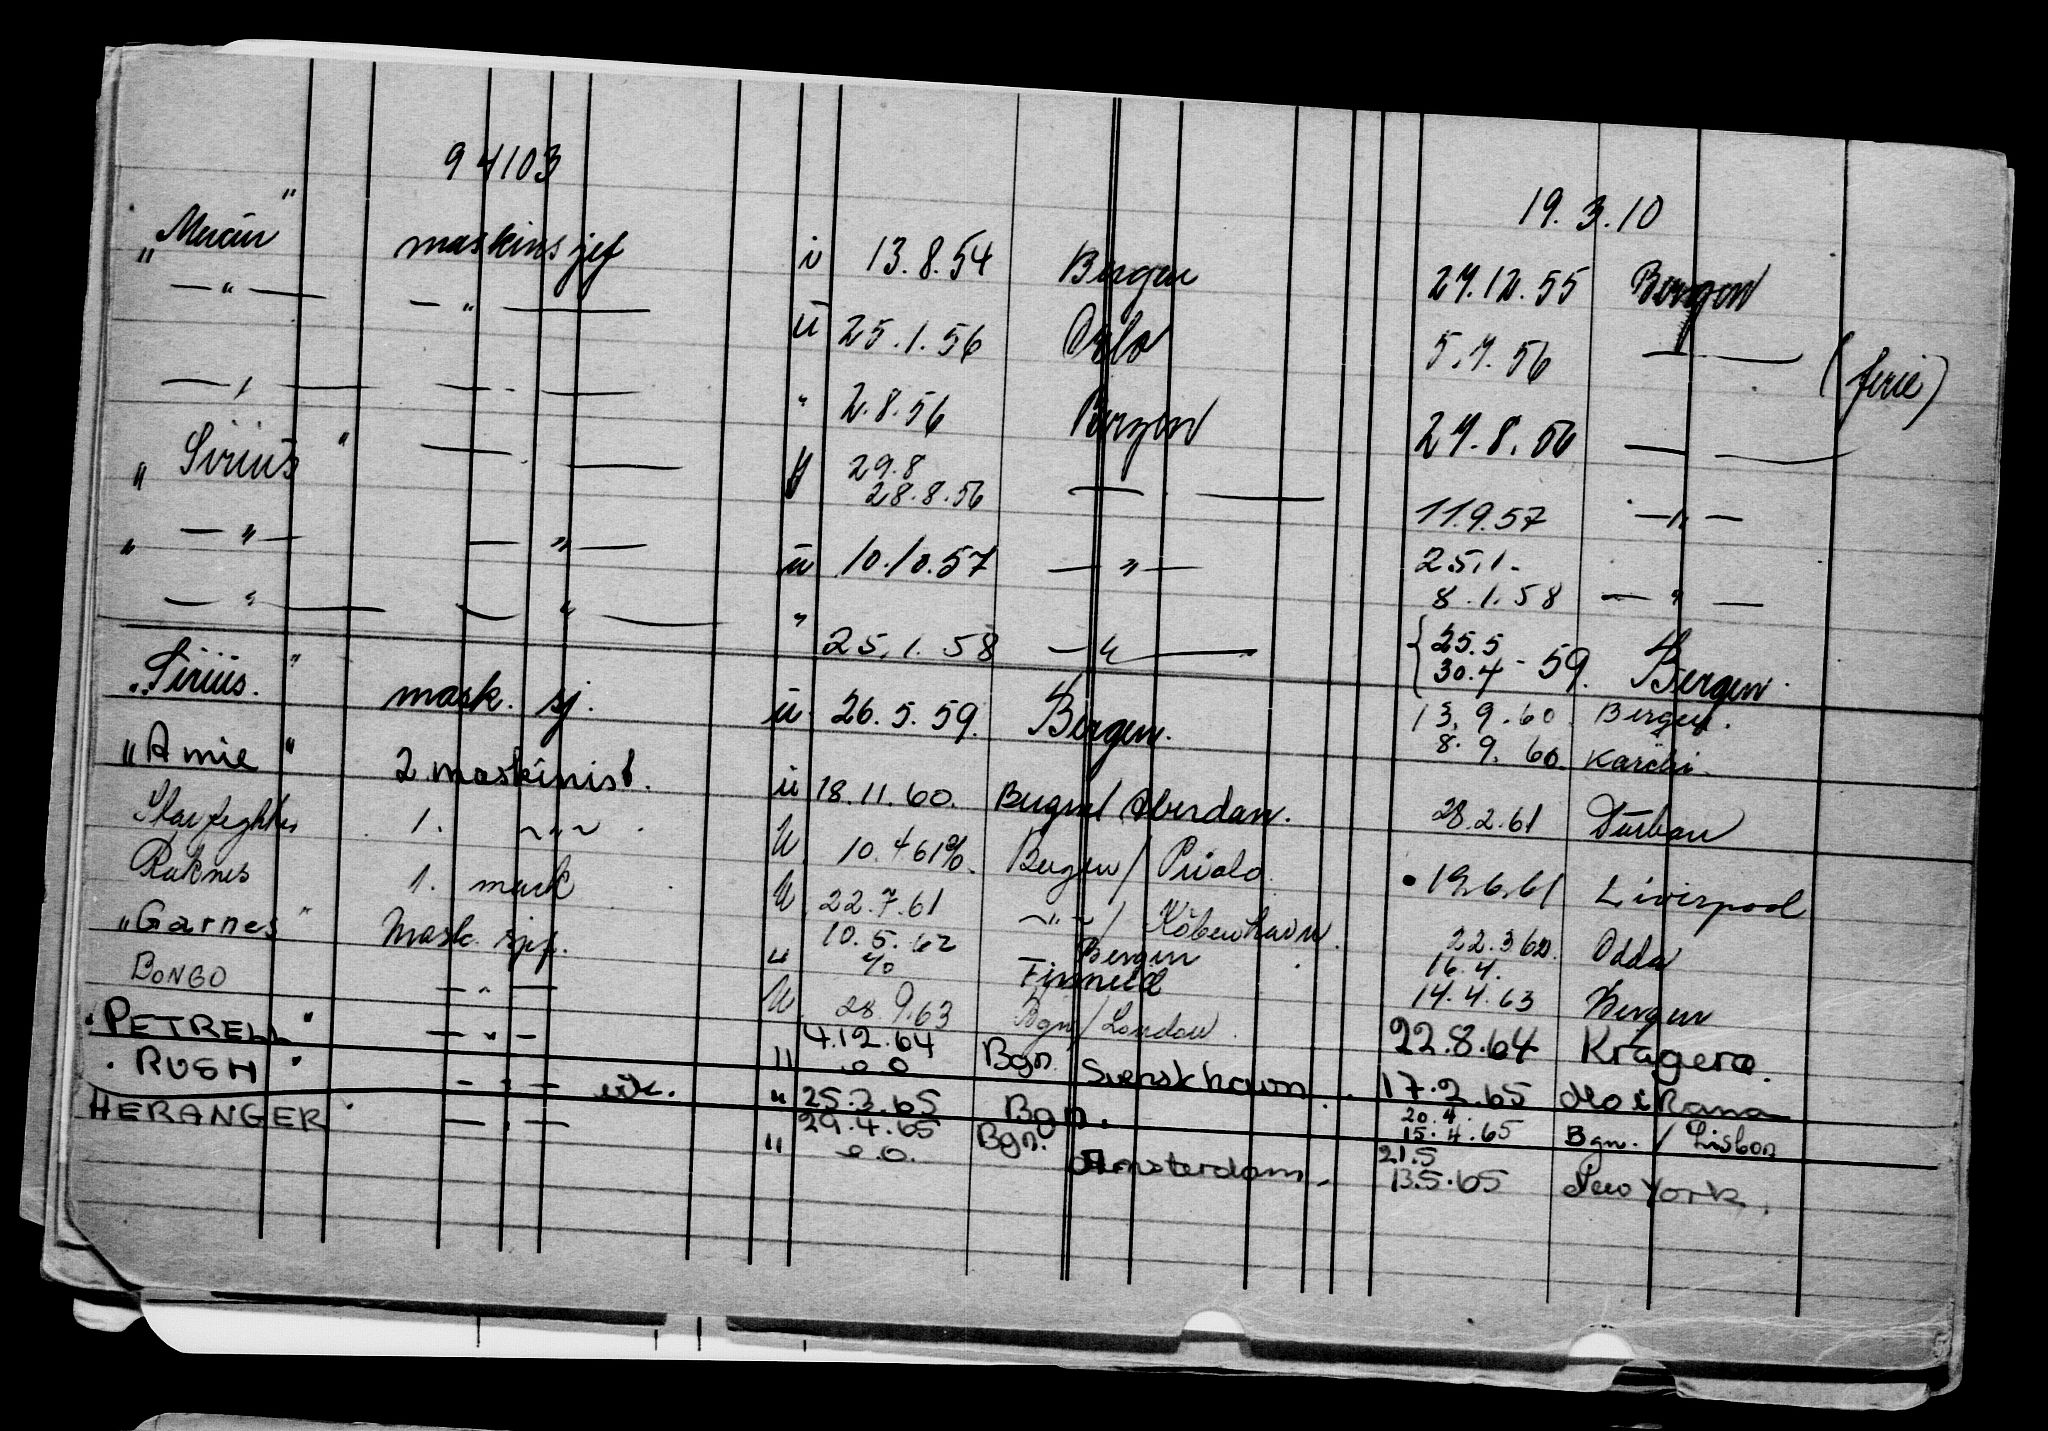 94103
19.3.10
" maskinsjef 13.8.54 Bergen 27.12.55 Bergen
— " — — " — ü 25.1.56 Oslo 5.7.56 — (ferie)
— " — — " — " 2.8.56 Bergen 27.8.56 — " —
" Sirius " — " — 29.8 28.8.56 — " — 11.9.57 — " —
" — " — — " — ü 10.10.57 — " — 25.1. 8.1.58 — " —
— " — — " — " 25.1.58 — " — { 25.5 30.4 - 59. Bergen.
" Sirius. " mask. sj. ü 26.5.59. Bergen. 13.9.60. Bergen. 8.9.60.
" 2 maskinist. ü 18.11.60. 28.2.61 Durban
1. ~ " ~ U 10.4 61 %. Bergen / 19.6.61 Liverpool
Raknes 1. mask U 22.7.61 ~ " ~ / København. 22.3 62. Odda
" Garnes " Mask. sjef. " 10.5.62 % Bergen 16.4. 14.4.63 Bergen
BONGO — " — U. 28.9.63 Bgn / London. 22.8.64 Kragerø.
" PETRELL " — " — " 4.12.64 e o Bgn. Svenskhavn. 17.2.65 Mo i Rana
" RUSH " — " — vik. " 25.3.65 Bgn. 20.4. 15.4.65 Bgn. / Lisbon
HERANGER — " — " 29.4.65 e.o. Bgn. Amsterdam. 21.5 13.5.65 New York.